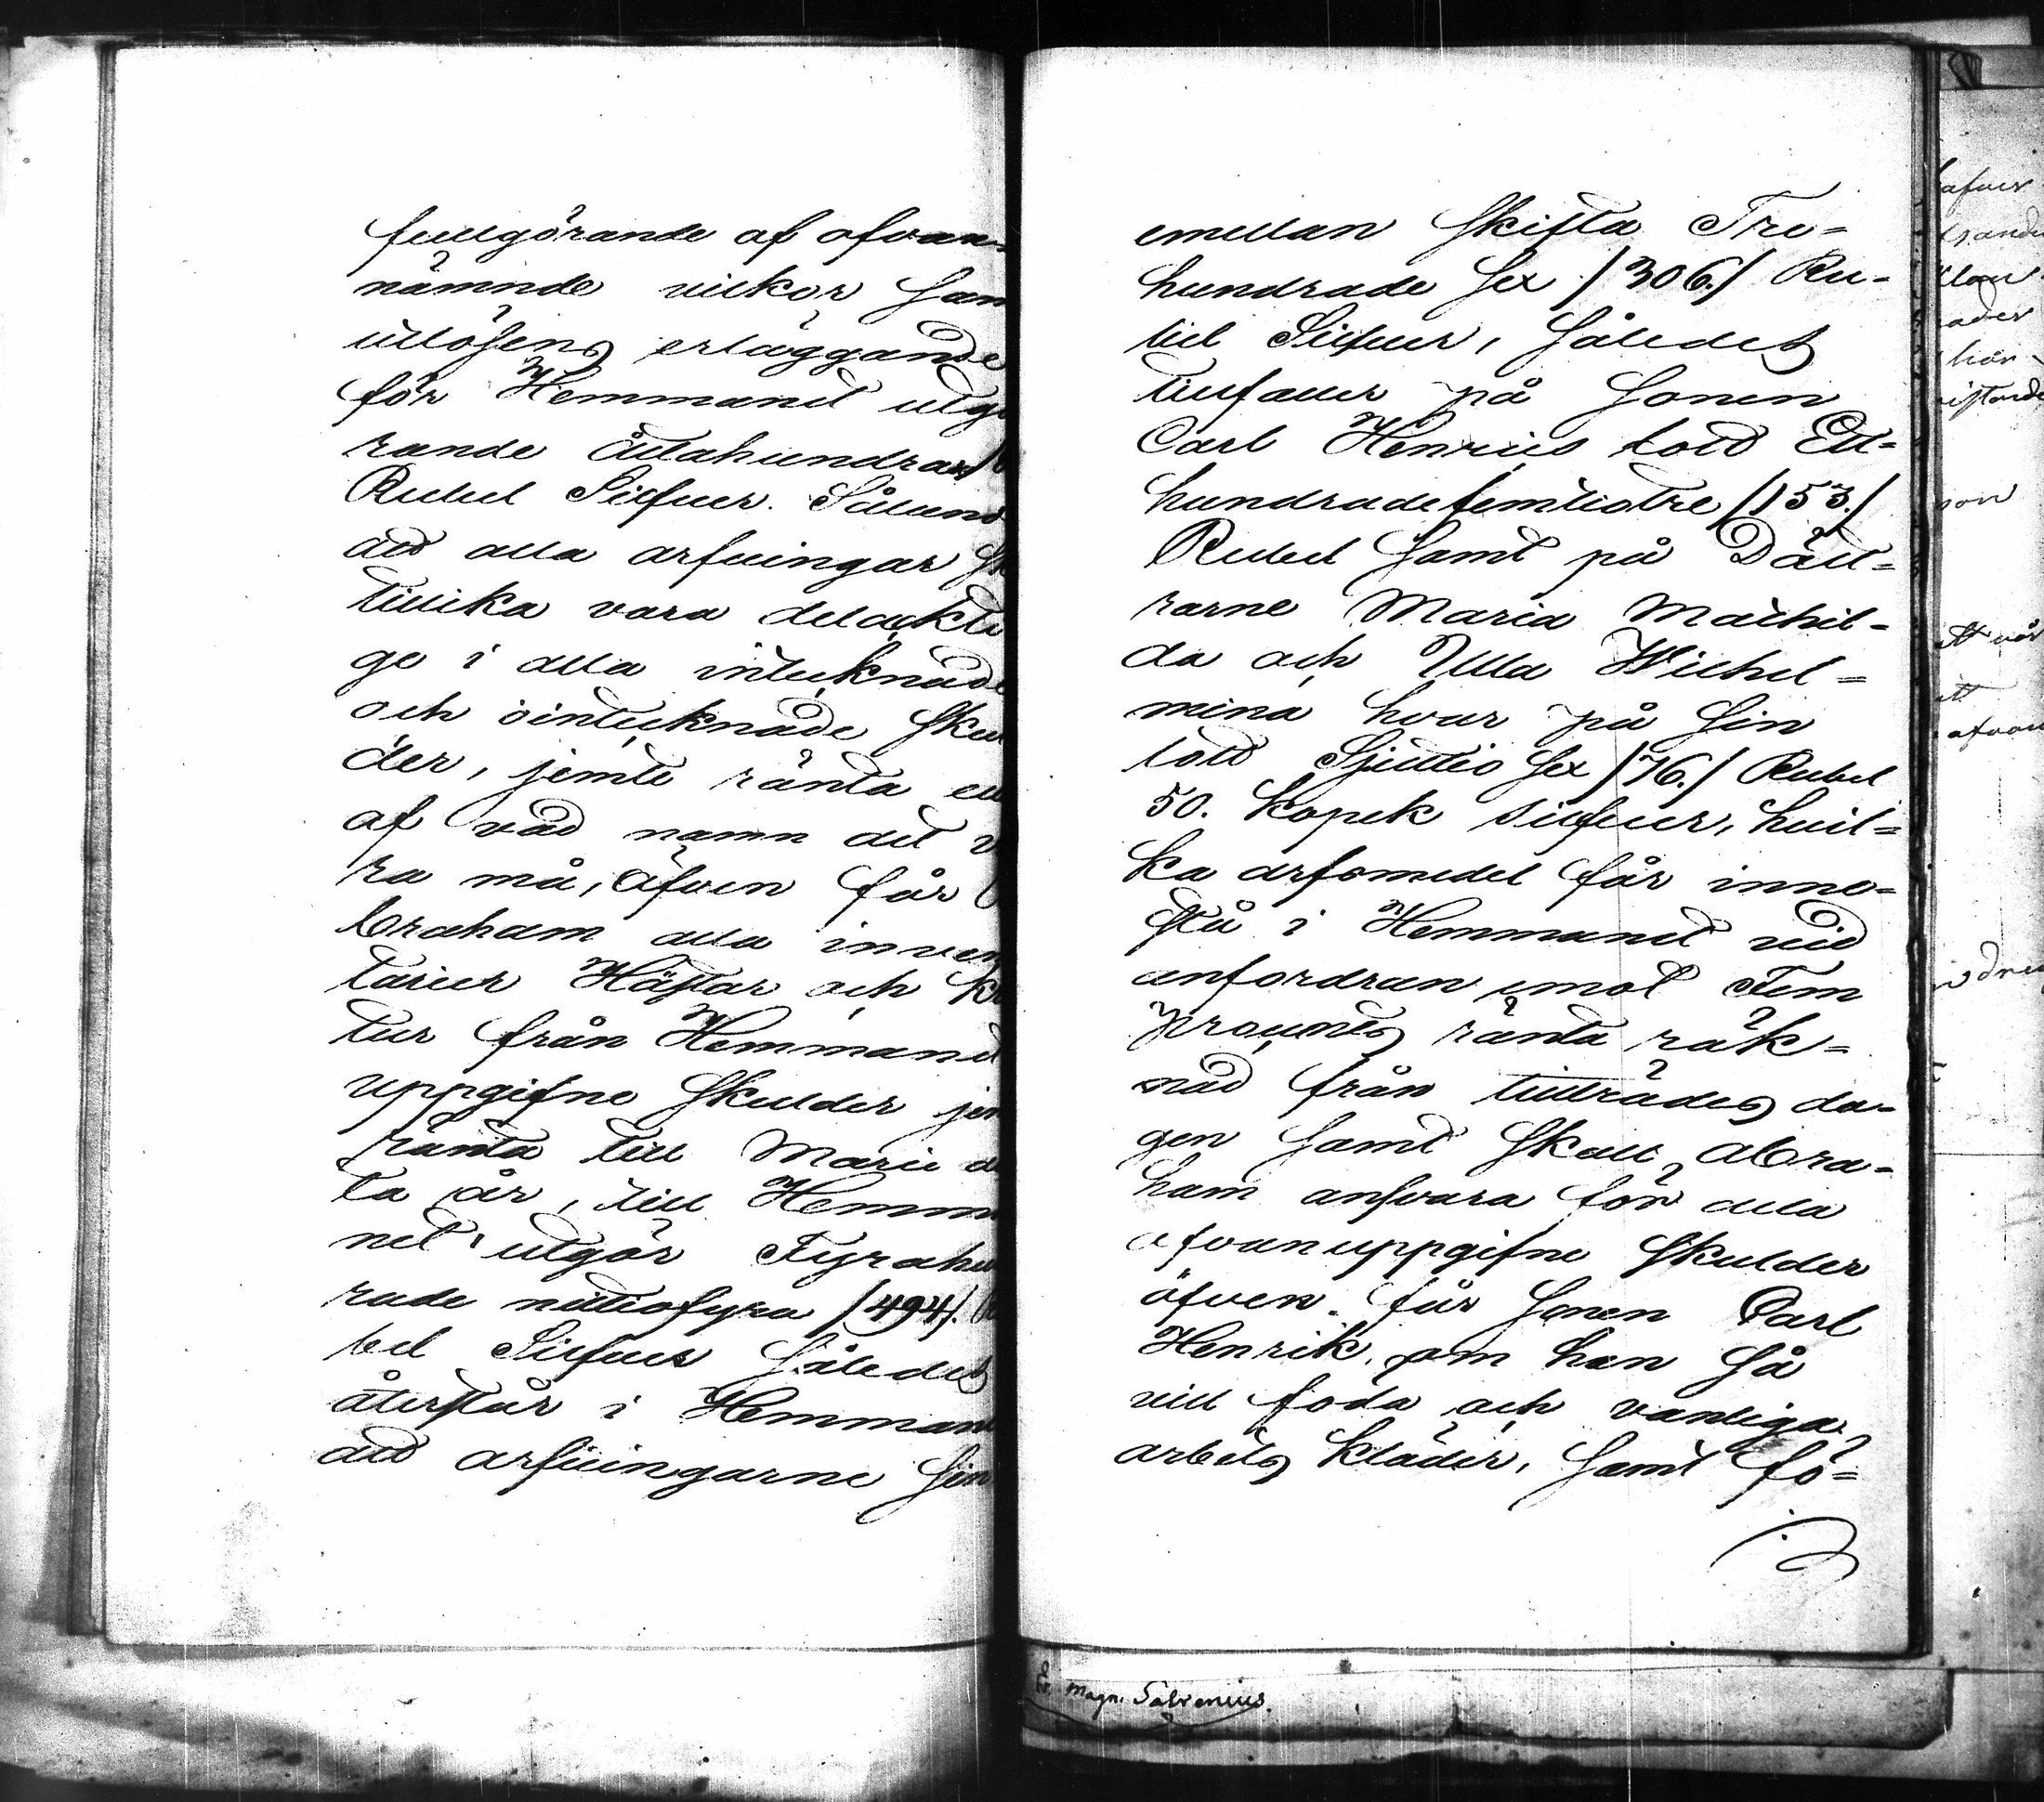 fullgörande af ofvan-
nämnde vilkor Sam
utlösens erläggande
för Hemmanet utgö
rande Åttahundrad
Rubel Silfver. Sålund
att alla arfvingar sk
tillika vara delackti
ge i alla inteknade
och ointeknade Skul
der, jemte ränta ell
af vad namn det v
ra må, äfven får
braham alla inven
tarier Hästar och Kr
tur från Hemmanet
uppgifne Skulder jem
ränta till Marie d
ta år, till Hemma
net utgör Fyrahu
rade nittiofyra /494/.
bel Silfver Således
återstår i Hemman
att arfvingarne Sin
emellan Skifta Tre-
hundrade Sex /306./ Ru-
bel Silfver, Således
tillfaller på Sonen
Carl Henrics lott Ett-
hundradefemtiotre /153./
Rubel Samt på Dätt-
rarne Maria Mathil-
da och Ulla Wilhel-
mina hvar på Sin
lott Sjuttio Sex /76./ Rubel
50. Kopek Silfver, hvil-
ka arfsmedel får inne-
stå i Hemmanet vid
anfordran emot Fem
procents ränta räk-
nad från tillträdes da-
gen Samt Skall Abra-
ham ansvara för alla
ofvanuppgifne Skulder
öfven får Sonen Carl
Henrik, om han Så
vill föda och vanliga
arbets kläder, Samt fö-
Er. Magn. Salvenius
afvar